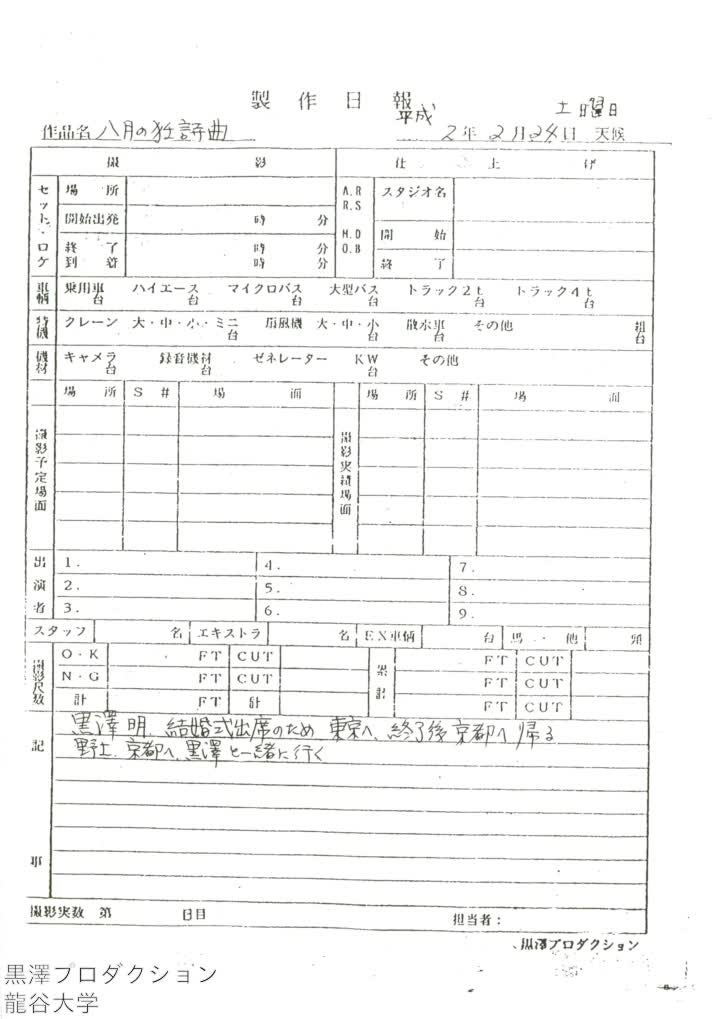 製作日報
平成
土曜日
作品名 八月の狂詩曲 2年2月24日 天候
撮影 仕上げ
セット・ロケ 場所 A.R R.S スタジオ名
開始出発 時 分 M.D D.B 開始
終了 時 分
到着 時 分 終了
車輌 乗用車 台 ハイエース 台 マイクロバス 台 大型バス 台 トラック2t 台 トラック4t 台
特機 クレーン 大・中・小・ミニ 台 扇風機 大・中・小 台 散水車 台 その他 組 台
機材 キャメラ 台 録音機材 台 ゼネレーター KW 台 その他
撮影予定場面 場所 S# 場面 撮影実績場面 場所 S# 場面
出演者
1. 4. 7.
2. 5. 8.
3. 6. 9.
スタッフ 名 エキストラ 名 EX車輌 台 馬・他 頭
撮影尺数 O・K FT CUT 累計 FT CUT
N・G FT CUT FT CUT
計 FT 計 FT CUT
記事
黒澤明、結婚式出席のため 東京へ、終了後京都へ帰る
野上、京都へ、黒澤と一緒に行く
撮影実数 第 日目 担当者:
黒澤プロダクション
黒澤プロダクション
龍谷大学